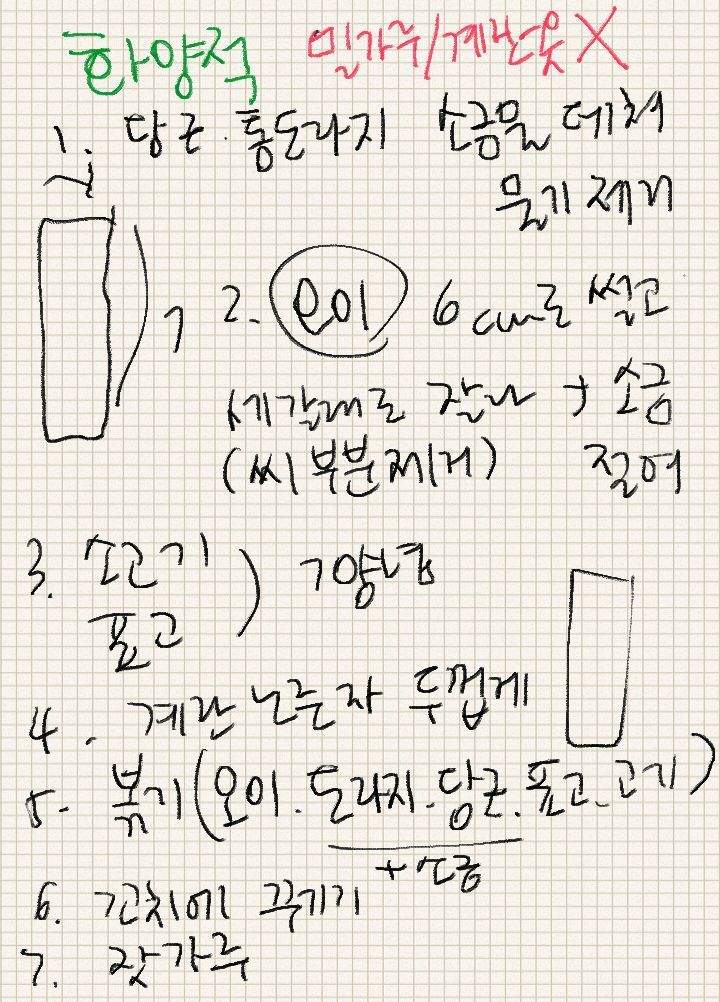 화양적 밀가루/계란옷 X
1. 당근.통도라지 소금물 데쳐
물기 제거
2. 오이 6cm로 썰고
세갈래로 잘라 + 소금
(씨부분제거) 절여
3. 소고기
표고 ) 갖은양념
4. 계란노른자 두껍게
5. 볶기(오이.도라지.당근.표고.고기)
+소금
6. 꼬치에 꾸기기
7. 잣가루